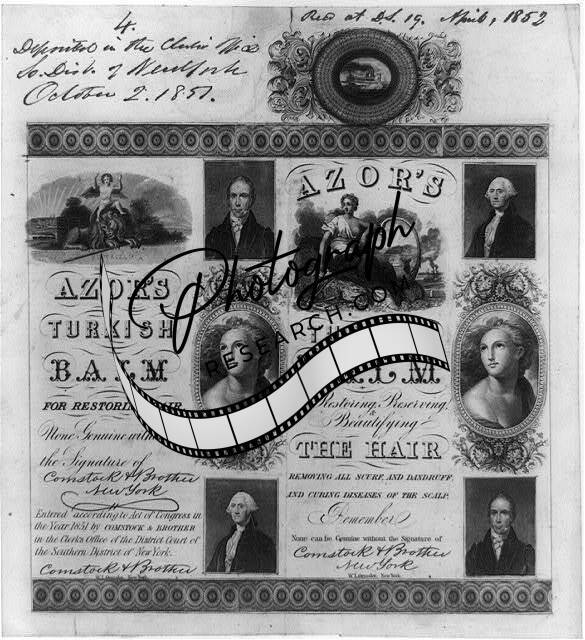 4.
Deposited in the Clerks Office
So. Dist. of New York
October 2. 1851.
Rec'd at D.S. 19. April, 1852
AZOR'S
TURKISH
BALM
FOR RESTORING
None Genuine with
the Signature of
Comstock & Brother
New York
Entered according to Act of Congress in
the Year 1851 by COMSTOCK & BROTHER
in the Clerks Office of the District Court of
the Southern District of New York.
Comstock & Brother
New York.
AZOR'S
Restoring, Preserving,
&
Beautifying
THE HAIR
REMOVING ALL SCURF, AND DANDRUFF,
AND CURING DISEASES OF THE SCALP.
Remember
None can be Genuine without the Signature of
Comstock & Brother
New York
New York.
Photograph
RESEARCH.COM